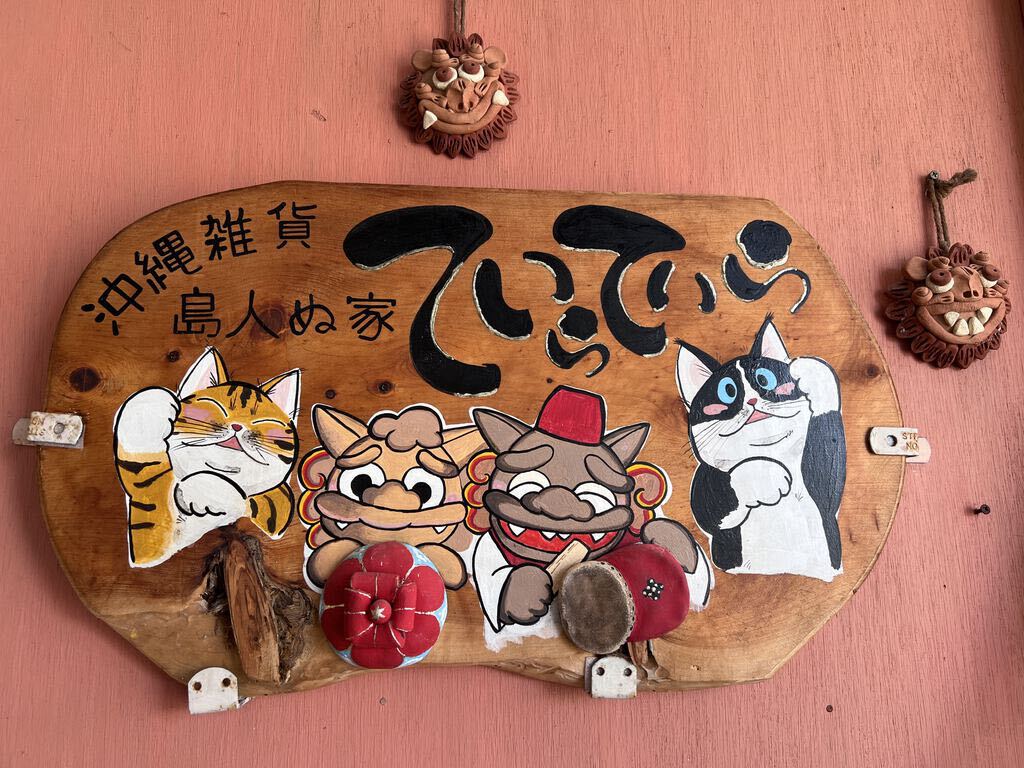 沖縄雑貨
島人ぬ家
てぃらてぃら